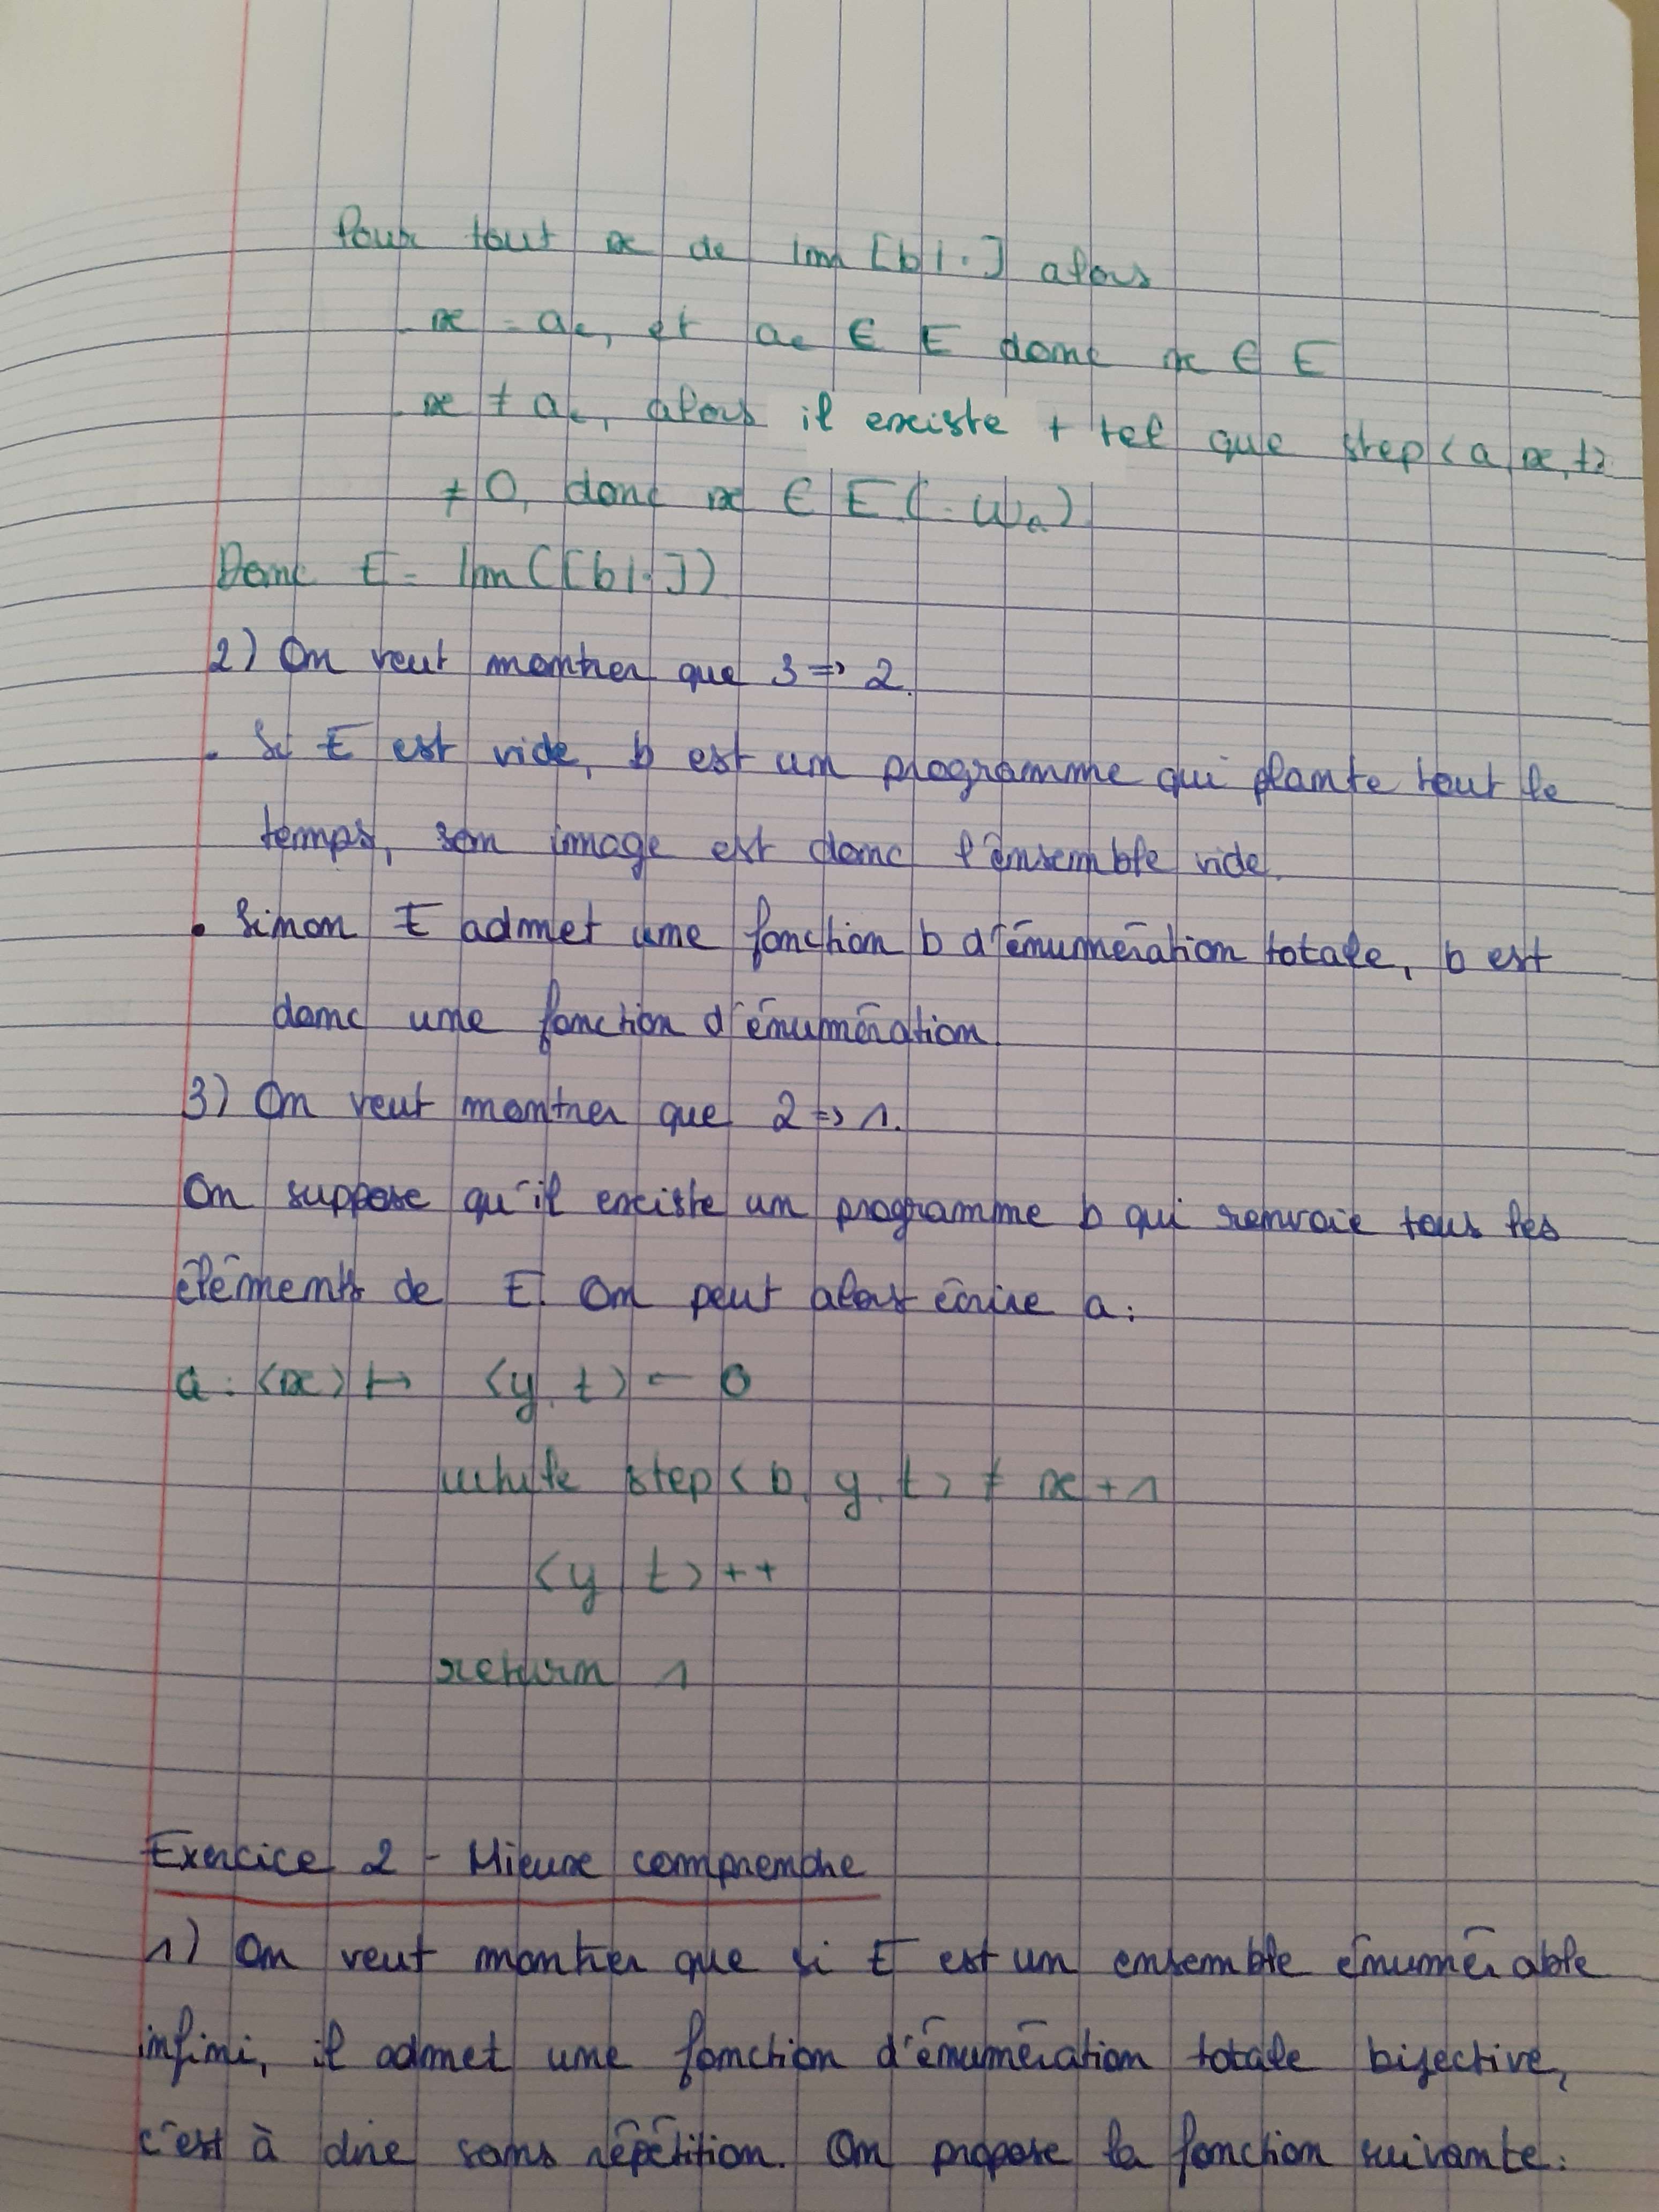 Pour tout x de Im [b|.] alors
- x = a₀, et a₀ ∈ E donc x ∈ E
- x ≠ a₀, alors il existe t tel que step<a, x, t>
≠ 0, donc x ∈ E (= Wa)
Donc E = Im([b|.])
2) On veut montrer que 3 => 2.
• Si E est vide, b est un programme qui plante tout le
temps, son image est donc l'ensemble vide.
• Sinon E admet une fonction b d'énumération totale, b est
donc une fonction d'énumération
3) On veut montrer que 2 => 1.
On suppose qu'il existe un programme b qui renvoie tous les
éléments de E. On peut alors écrire a :
a : <x> ↦ <y, t> = 0
while step<b, y, t> ≠ x + 1
<y, t>++
return 1
Exercice 2 - Mieux comprendre
1) On veut montrer que si E est un ensemble énumérable
infini, il admet une fonction d'énumération totale bijective,
c'est à dire sans répétition. On propose la fonction suivante :